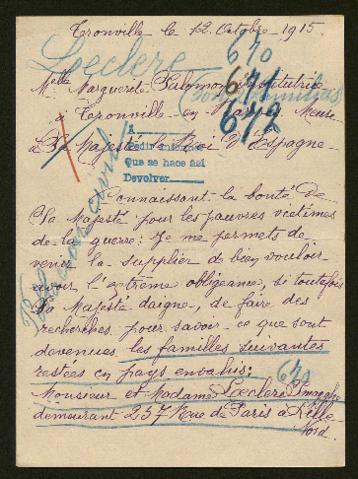 Tronville le 12 Octobre 1915.
Loeclerc 670
Melle Marguerite Salomon, institutrice 671
à Tronville en Barrois Meuse 672
à Sa Majesté le Roi d'Espagne
A
Pedir
Que se hace así
Devolver
Connaissant la bonté de
Sa Majesté pour les pauvres victimes
de la guerre: Je me permets de
venir la supplier de bien vouloir
avoir l'extrême obligeance, si toutefois
Sa Majesté daigne, de faire des
recherches pour savoir ce que sont
devenues les familles suivantes
restées en pays envahis: 670
Monsieur et Madame Loeclerc
demeurant 257 Rue de Paris à Lille
Nord.